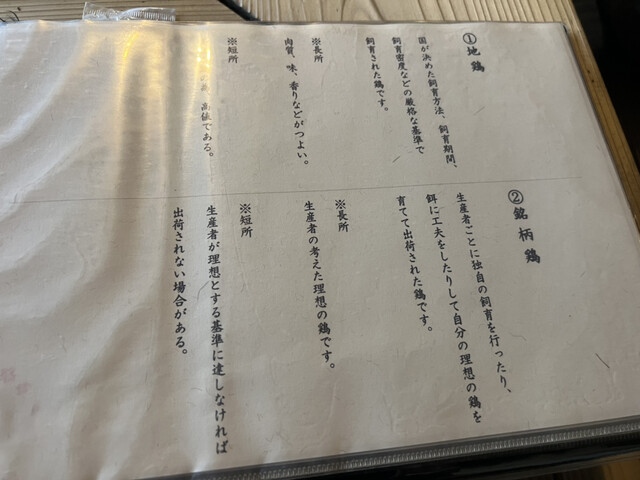 ①地鶏
国が決めた飼育方法、飼育期間、
飼育密度などの厳格な基準で
飼育された鶏です。
※長所
肉質、味、香りなどがつよい。
※短所
高値である。
②銘柄鶏
生産者ごとに独自の飼育を行ったり、
餌に工夫をしたりして自分の理想の鶏を
育てて出荷された鶏です。
※長所
生産者の考えた理想の鶏です。
※短所
生産者が理想とする基準に達しなければ
出荷されない場合がある。